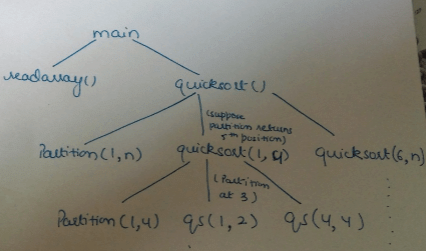 main
readarray()
quicksort()
(suppose
partition returns
5th position)
Partition(1,n)
quicksort(1,4)
quicksort(6,n)
(Partition
at 3)
Partition(1,4)
qs(1,2)
qs(4,4)